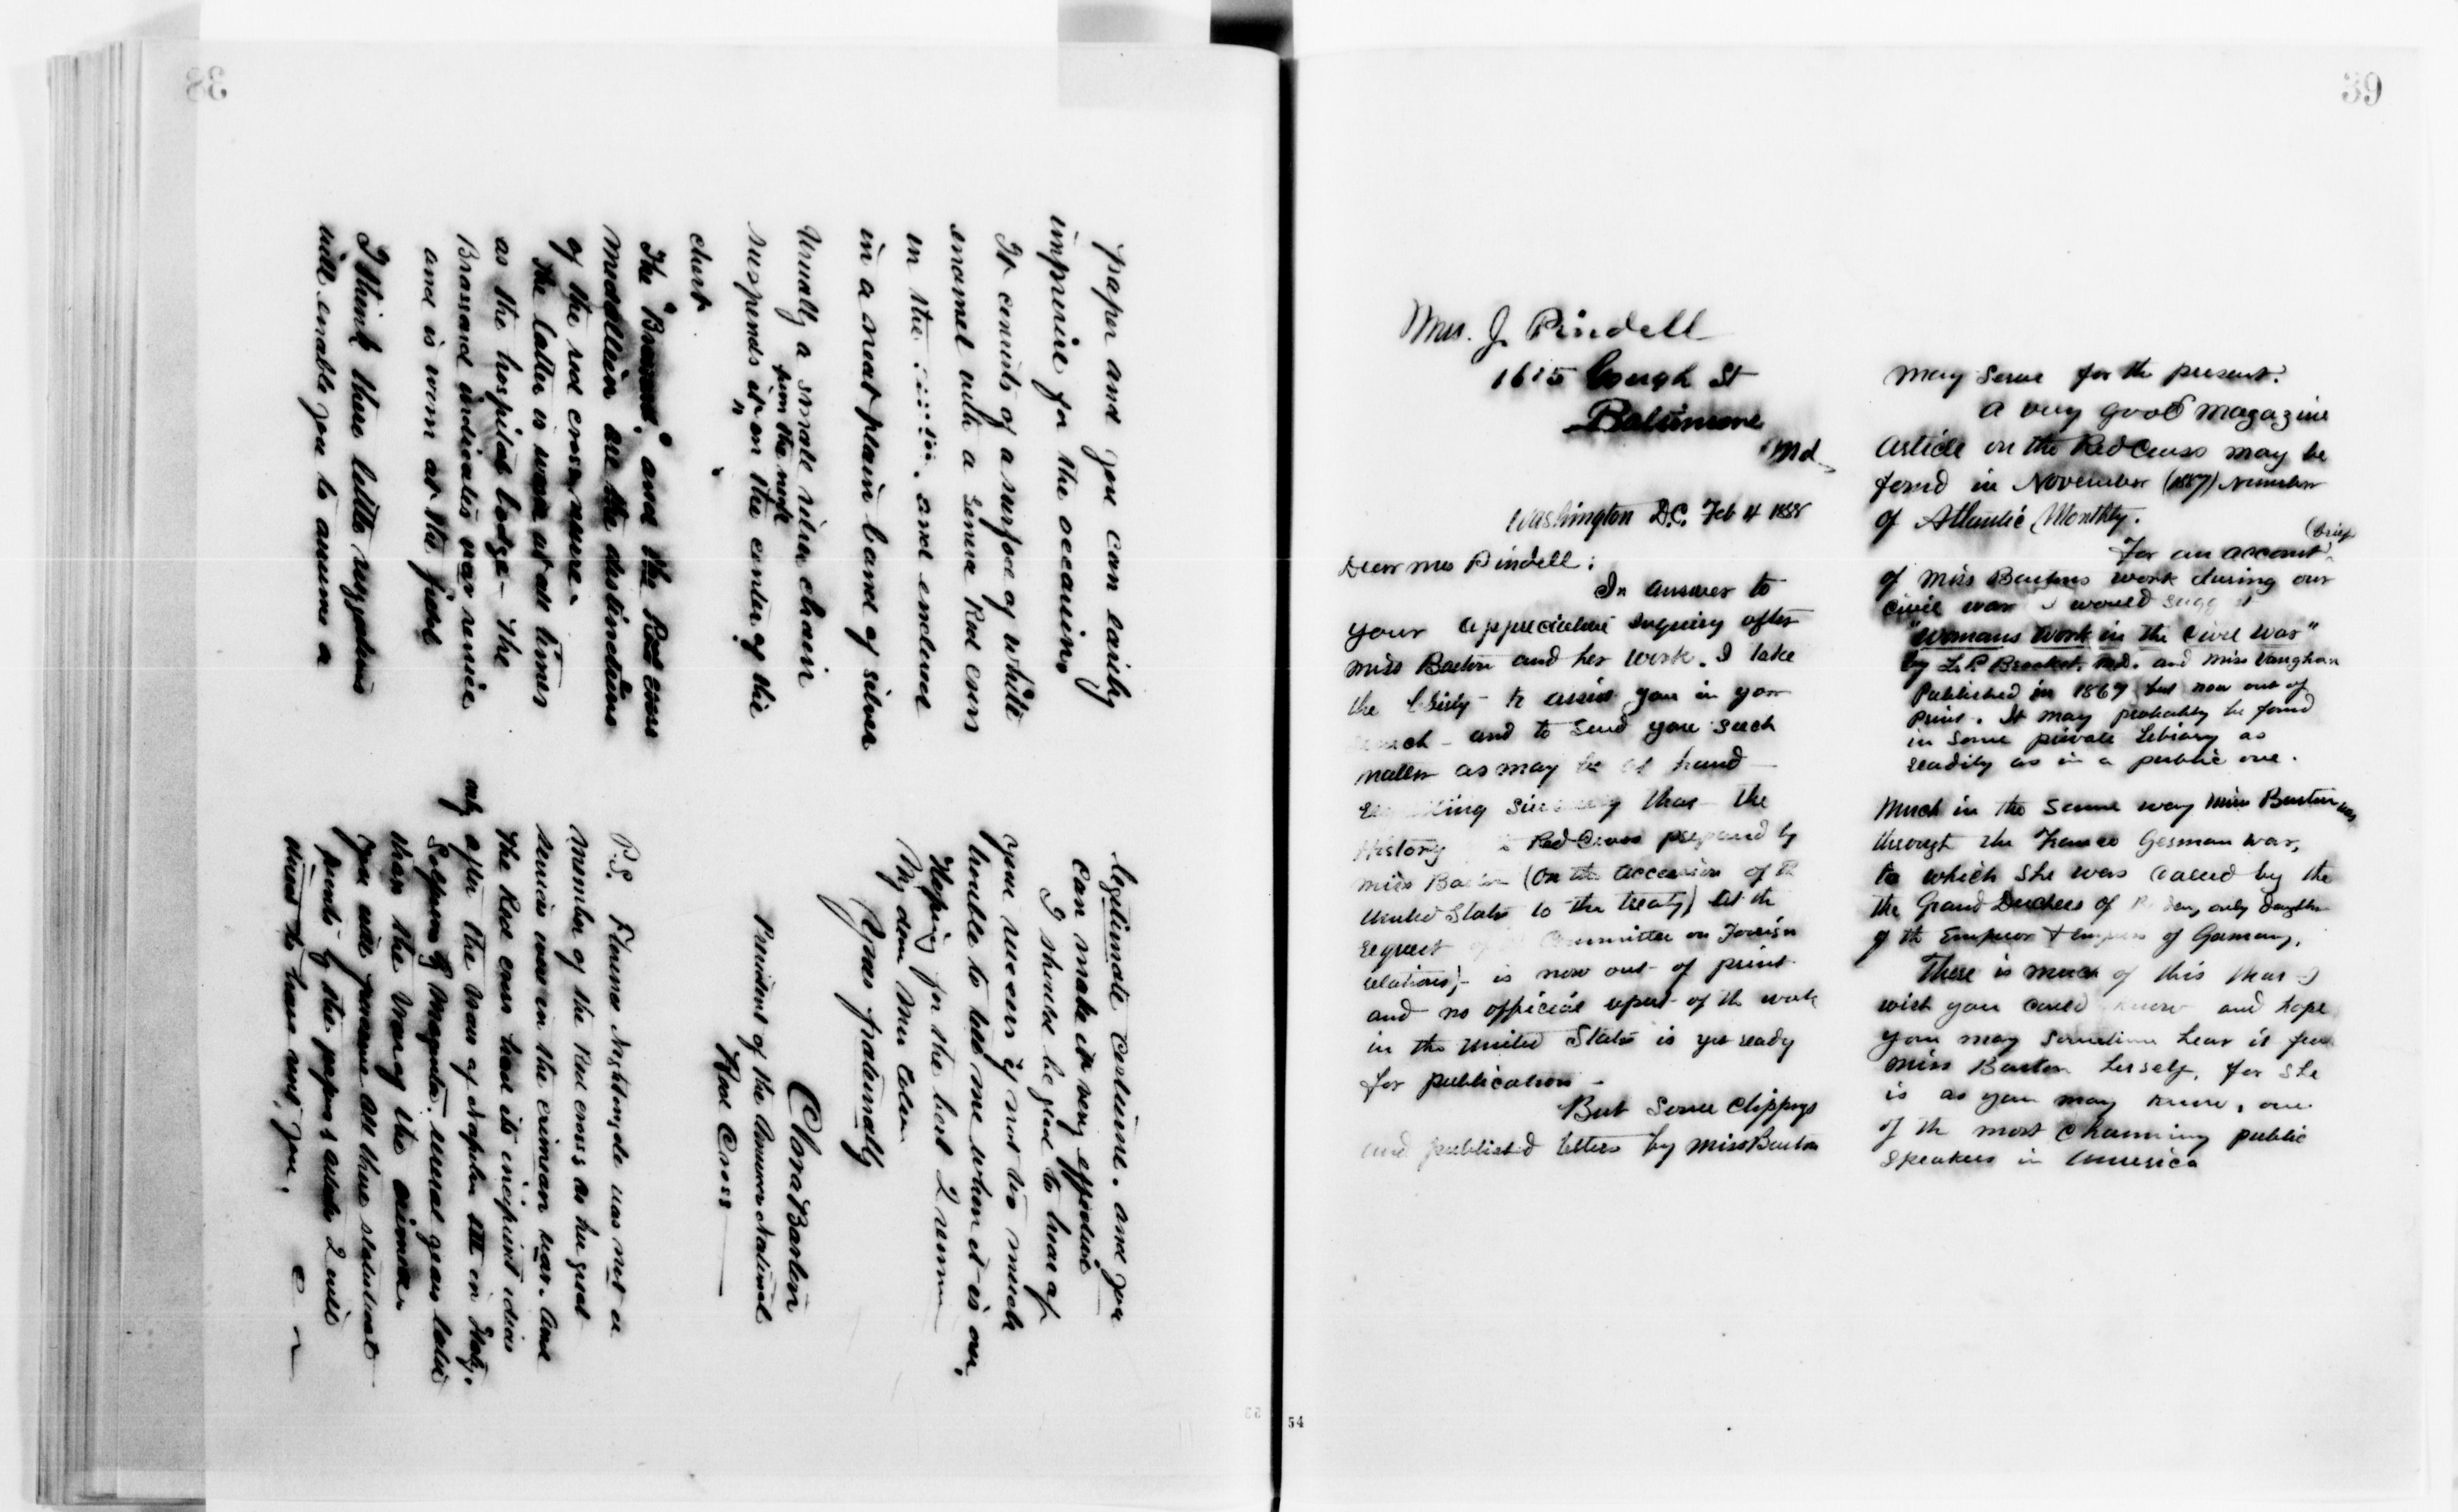 38
paper and you can easily
improvise for the occasion.
It consists of a surface of white
enamel with a Geneva Red Cross
in the and enclosed
in a neat plain band of silver
Usually a small silver chain
from the neck
suspends it on the center of the
chest
The "Brassard" and the Red Cross
medallion are the distinctions
of the red cross nurse.
The latter is worn at all times
as the hospital badge - The
Brassard indicates war service
and is worn at the front
I think these little suggestions
will enable you to assume a
legitimate costume. and you
can make it very effective
I should be glad to hear of
your success if not too much
trouble to tell me when it is over.
Hoping for the best I remain
My dear Mrs
Yours fraternally
Clara Barton
President of the American National
Red Cross
P.S. Florence Nightengale was not a
member of the Red Cross as her great
services were in the crimean war. And
The Red Cross had its incipient ideas
only after the war of Napoleon III in Italy.
Solferino & Magenta. several years later
than the War of the crimea.
you will pardon all these statistical
points of the papers I will
to leave with you.
39
Mrs. J. Pindell
1615 Gough St
Baltimore
Md.
Washington D.C. Feb 4 1888
Dear Mrs Pindell:
In answer to
your appreciative inquiry after
Miss Barton and her work. I take
the liberty to assist you in your
search - and to send you such
matter as may be at hand
regretting sincerely that the
History Red Cross prepared by
Miss Barton (On the accession of the
United States to the treaty) at the
request of Committee on Foreign
relations, - is now out of print
and no official report of the work
in the United States is yet ready
for publication -
But some clippings
and published letters by Miss Barton
may serve for the present.
A very good magazine
article on the Red Cross may be
found in November (1887) Number
of Atlantic Monthly.
(brief
For an account
of Miss Bartons work during our
civil war I would suggest
"Womans Work in the Civil War"
by L. P. Brocket. M.D. and Miss Vaughan
Published in 1867 but now out of
print. It may probably be found
in some private library as
readily as in a public one.
Much in the same way Miss Barton was
through the Franco German war,
to which she was called by the
the Grand Duchess of Baden, only daughter
of the Emperor & Empress of Germany.
There is much of this that I
wish you could know and hope
you may sometime hear it from
Miss Barton herself, for she
is as you may know, one
of the most charming public
speakers in America
54